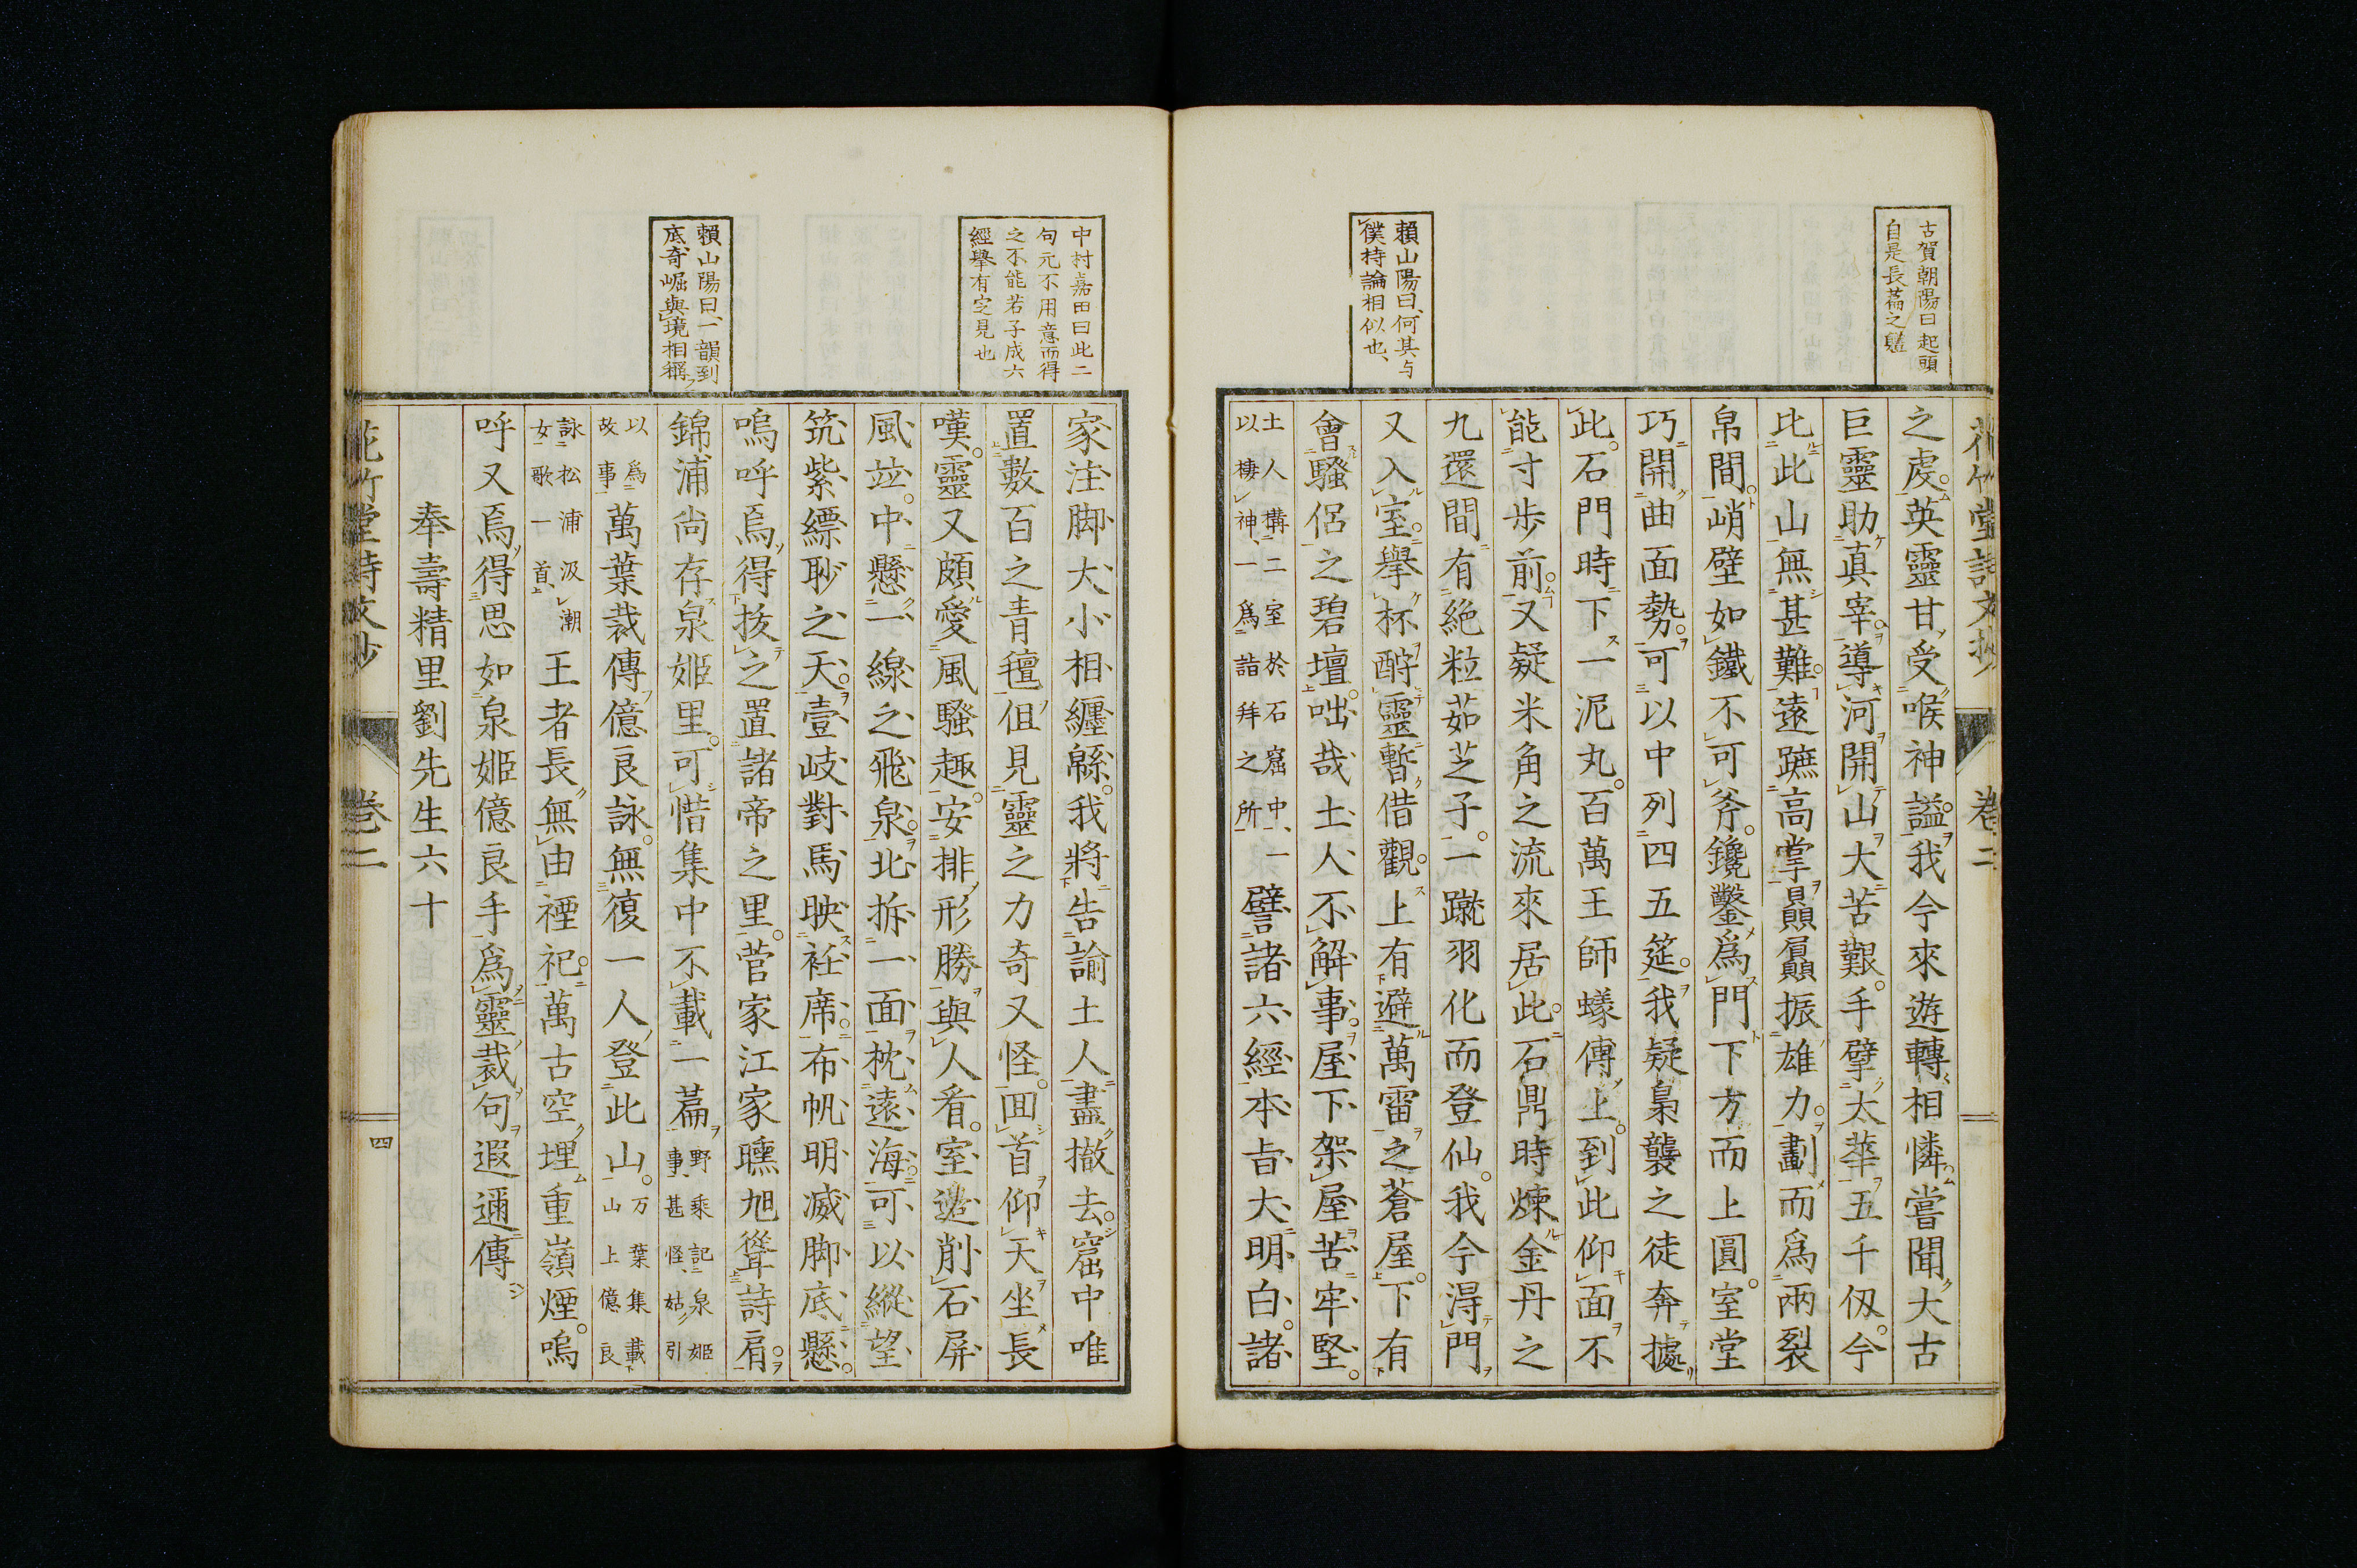 古賀朝陽曰起頭
自是長篇之軆
賴山陽曰、何其与
僕持論相似也、
之處。英靈甘受喉神謚。我今來遊轉相憐。嘗聞大古
巨靈助真宰。導河開山大苦艱。手擘太華五千仭。今
比此山無甚難。遠蹠高掌贔屭振雄力。劃而爲兩裂
帛間。峭壁如鐵不可斧。鑱鑿爲門下方而上圓。室堂
巧開曲面勢。可以中列四五筵。我疑梟襲之徒奔據
此。石門時下一泥丸。百萬王師蟻傳上。到此仰面不
能寸歩前。又疑米角之流來居此。石鼎時煉金丹之
九還間有絶粒茹芝子。一蹴羽化而登仙。我今淂門
又入室。擧杯酹靈暫借觀。上有避萬雷之蒼屋。下有
會騷侶之碧壇。咄哉土人不解事。屋下架屋苦牢堅。
土人構二室於石窟中、一
以棲神、一爲詣拜之所
譬諸六經本旨大明白。諸
中村嘉田曰此二
句元不用意而得
之不能若子成六
經擧有定見也
賴山陽曰、一韻到
底、奇崛與境相稱、
家注脚大小相纏緜。我將告諭土人盡撤去。窟中唯
置數百之青氊。但見靈之力奇又怪。囬首仰天坐長
嘆。靈又頗愛風騷趣。安排形勝與人看。室邊削石屏
風竝。中懸一線之飛泉。北拆一面枕遠海。可以縱望
筑紫縹眇之天。壹岐對馬映衽席。布帆明滅脚底懸。
嗚呼焉得拔之置諸帝之里。菅家江家曛旭聳詩肩。
錦浦尚存泉姫里。可惜集中不載一篇
野乘記泉姫
事、甚怪、姑引
以爲
故事
萬葉裁傳億良詠。無復一人登此山。
万葉集載
山上億良
詠松浦汲潮
女歌一首、
王者長無由禋祀。萬古空埋重嶺煙。嗚
呼又焉得思如泉姫億良手。爲靈裁句遐邇傳
奉壽精里劉先生六十
卷二
四